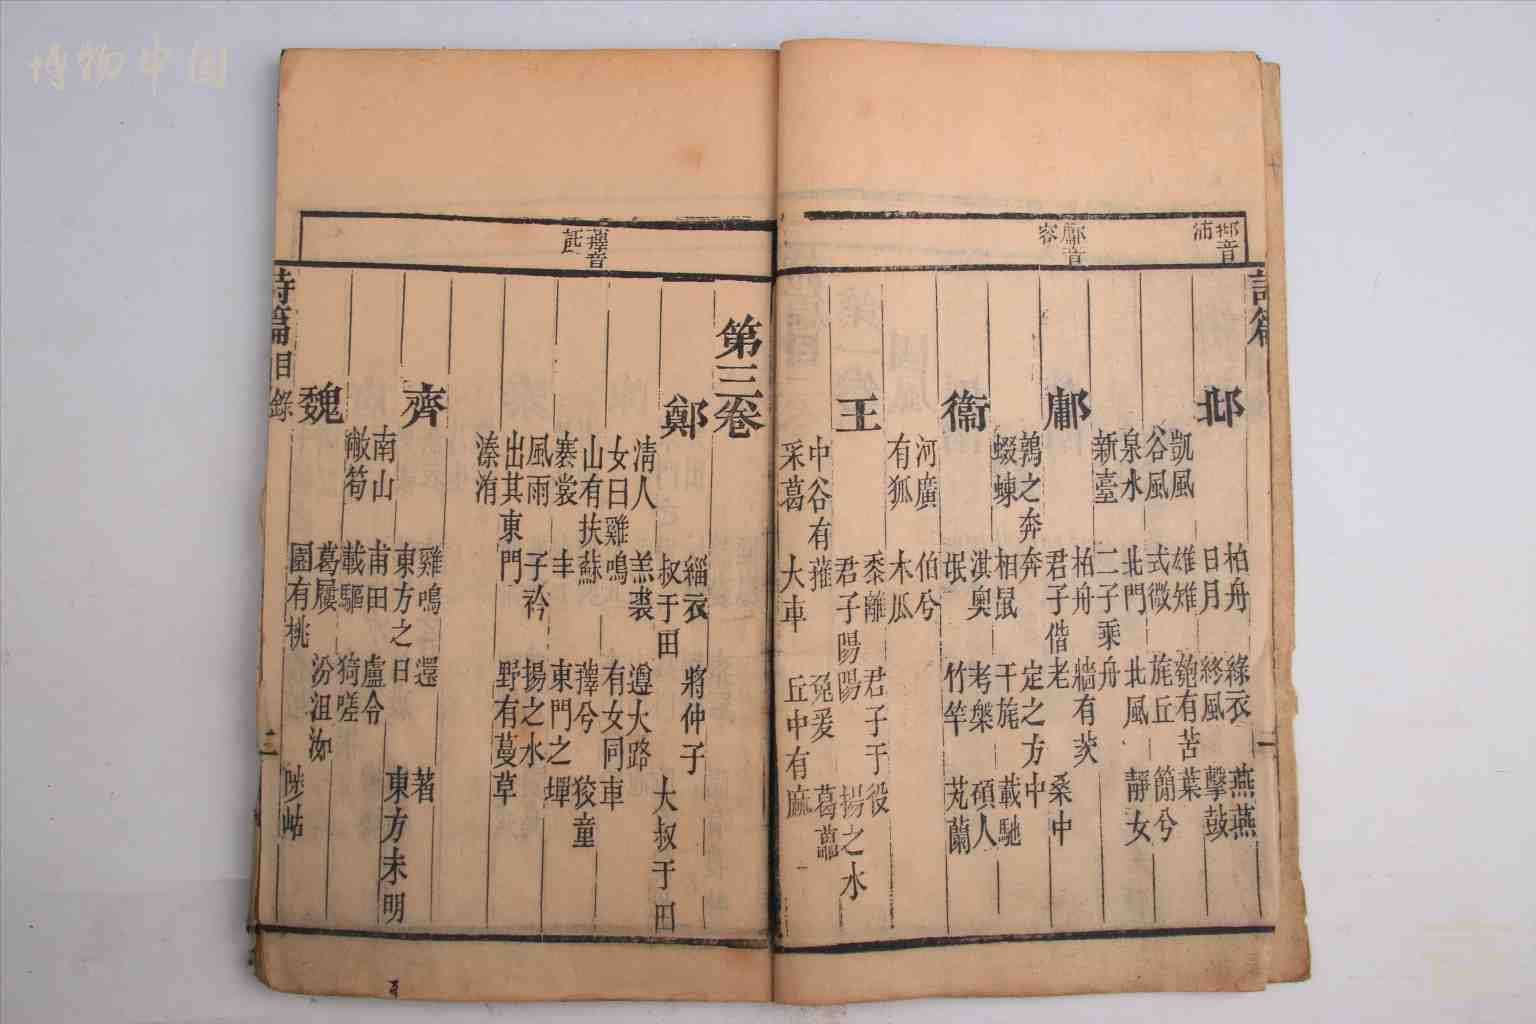 邶音
鄘音
容
詩篇
邶
柏舟 綠衣 燕燕
日月 終風 擊鼓
凱風 雄雉 匏有苦葉
谷風 式微 旄丘 簡兮
泉水 北門 北風 靜女
新臺 二子乘舟
鄘
柏舟 牆有茨
君子偕老 桑中
鶉之奔奔 定之方中
蝃蝀 相鼠 干旄 載馳
衛
淇奧 考槃 碩人
氓 竹竿 芄蘭
河廣 伯兮
有狐 木瓜
王
黍離 君子于役
君子陽陽 揚之水
中谷有蓷 兔爰 葛藟
采葛 大車 丘中有麻
蘀音
託
第三卷
鄭
緇衣 將仲子
叔于田 大叔于田
清人 羔裘 遵大路
女曰雞鳴 有女同車
山有扶蘇 蘀兮 狡童
褰裳 丰 東門之墠
風雨 子衿 揚之水
出其東門 野有蔓草
溱洧
齊
雞鳴 還 著
東方之日 東方未明
南山 甫田 盧令
敝笱 載驅 猗嗟
魏
葛屨 汾沮洳
園有桃 陟岵
詩篇目錄
博物中国